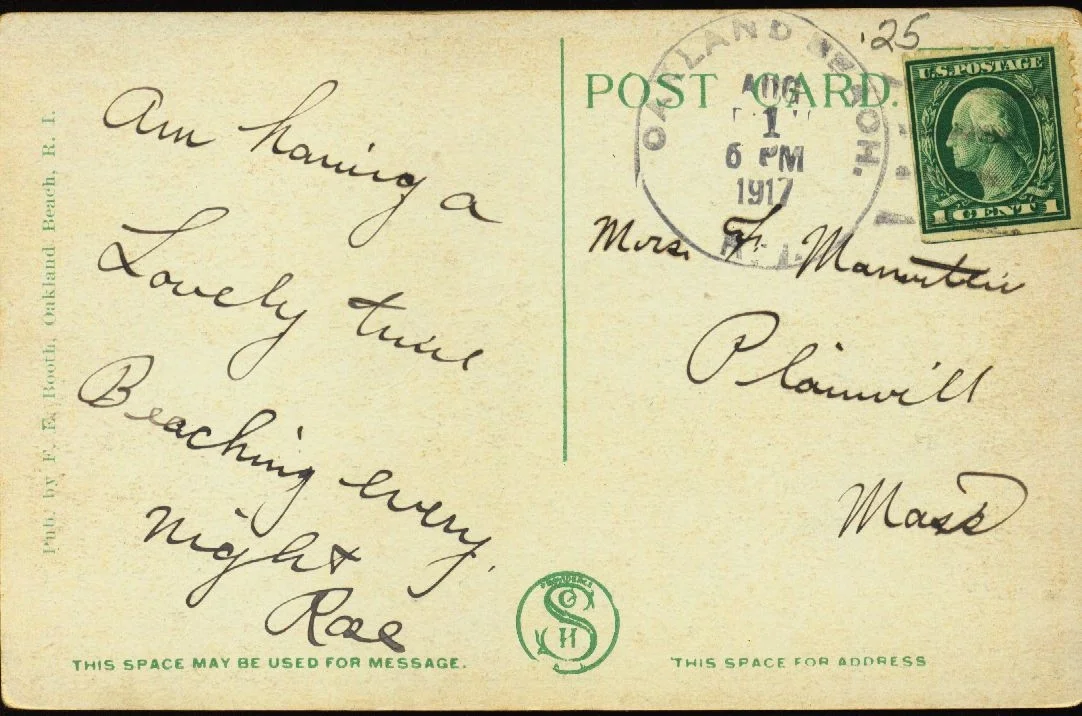 Pub. by F. E. Booth, Oakland Beach, R. I.
Am having a
Lovely time
Beaching every
night
Rae
THIS SPACE MAY BE USED FOR MESSAGE.
POST CARD.
.25
OAKLAND BEACH.
AUG
1
6 PM
1917
R.I.
U.S. POSTAGE
1 CENT 1
Mrs. F.
Plainvill
Mass
THIS SPACE FOR ADDRESS